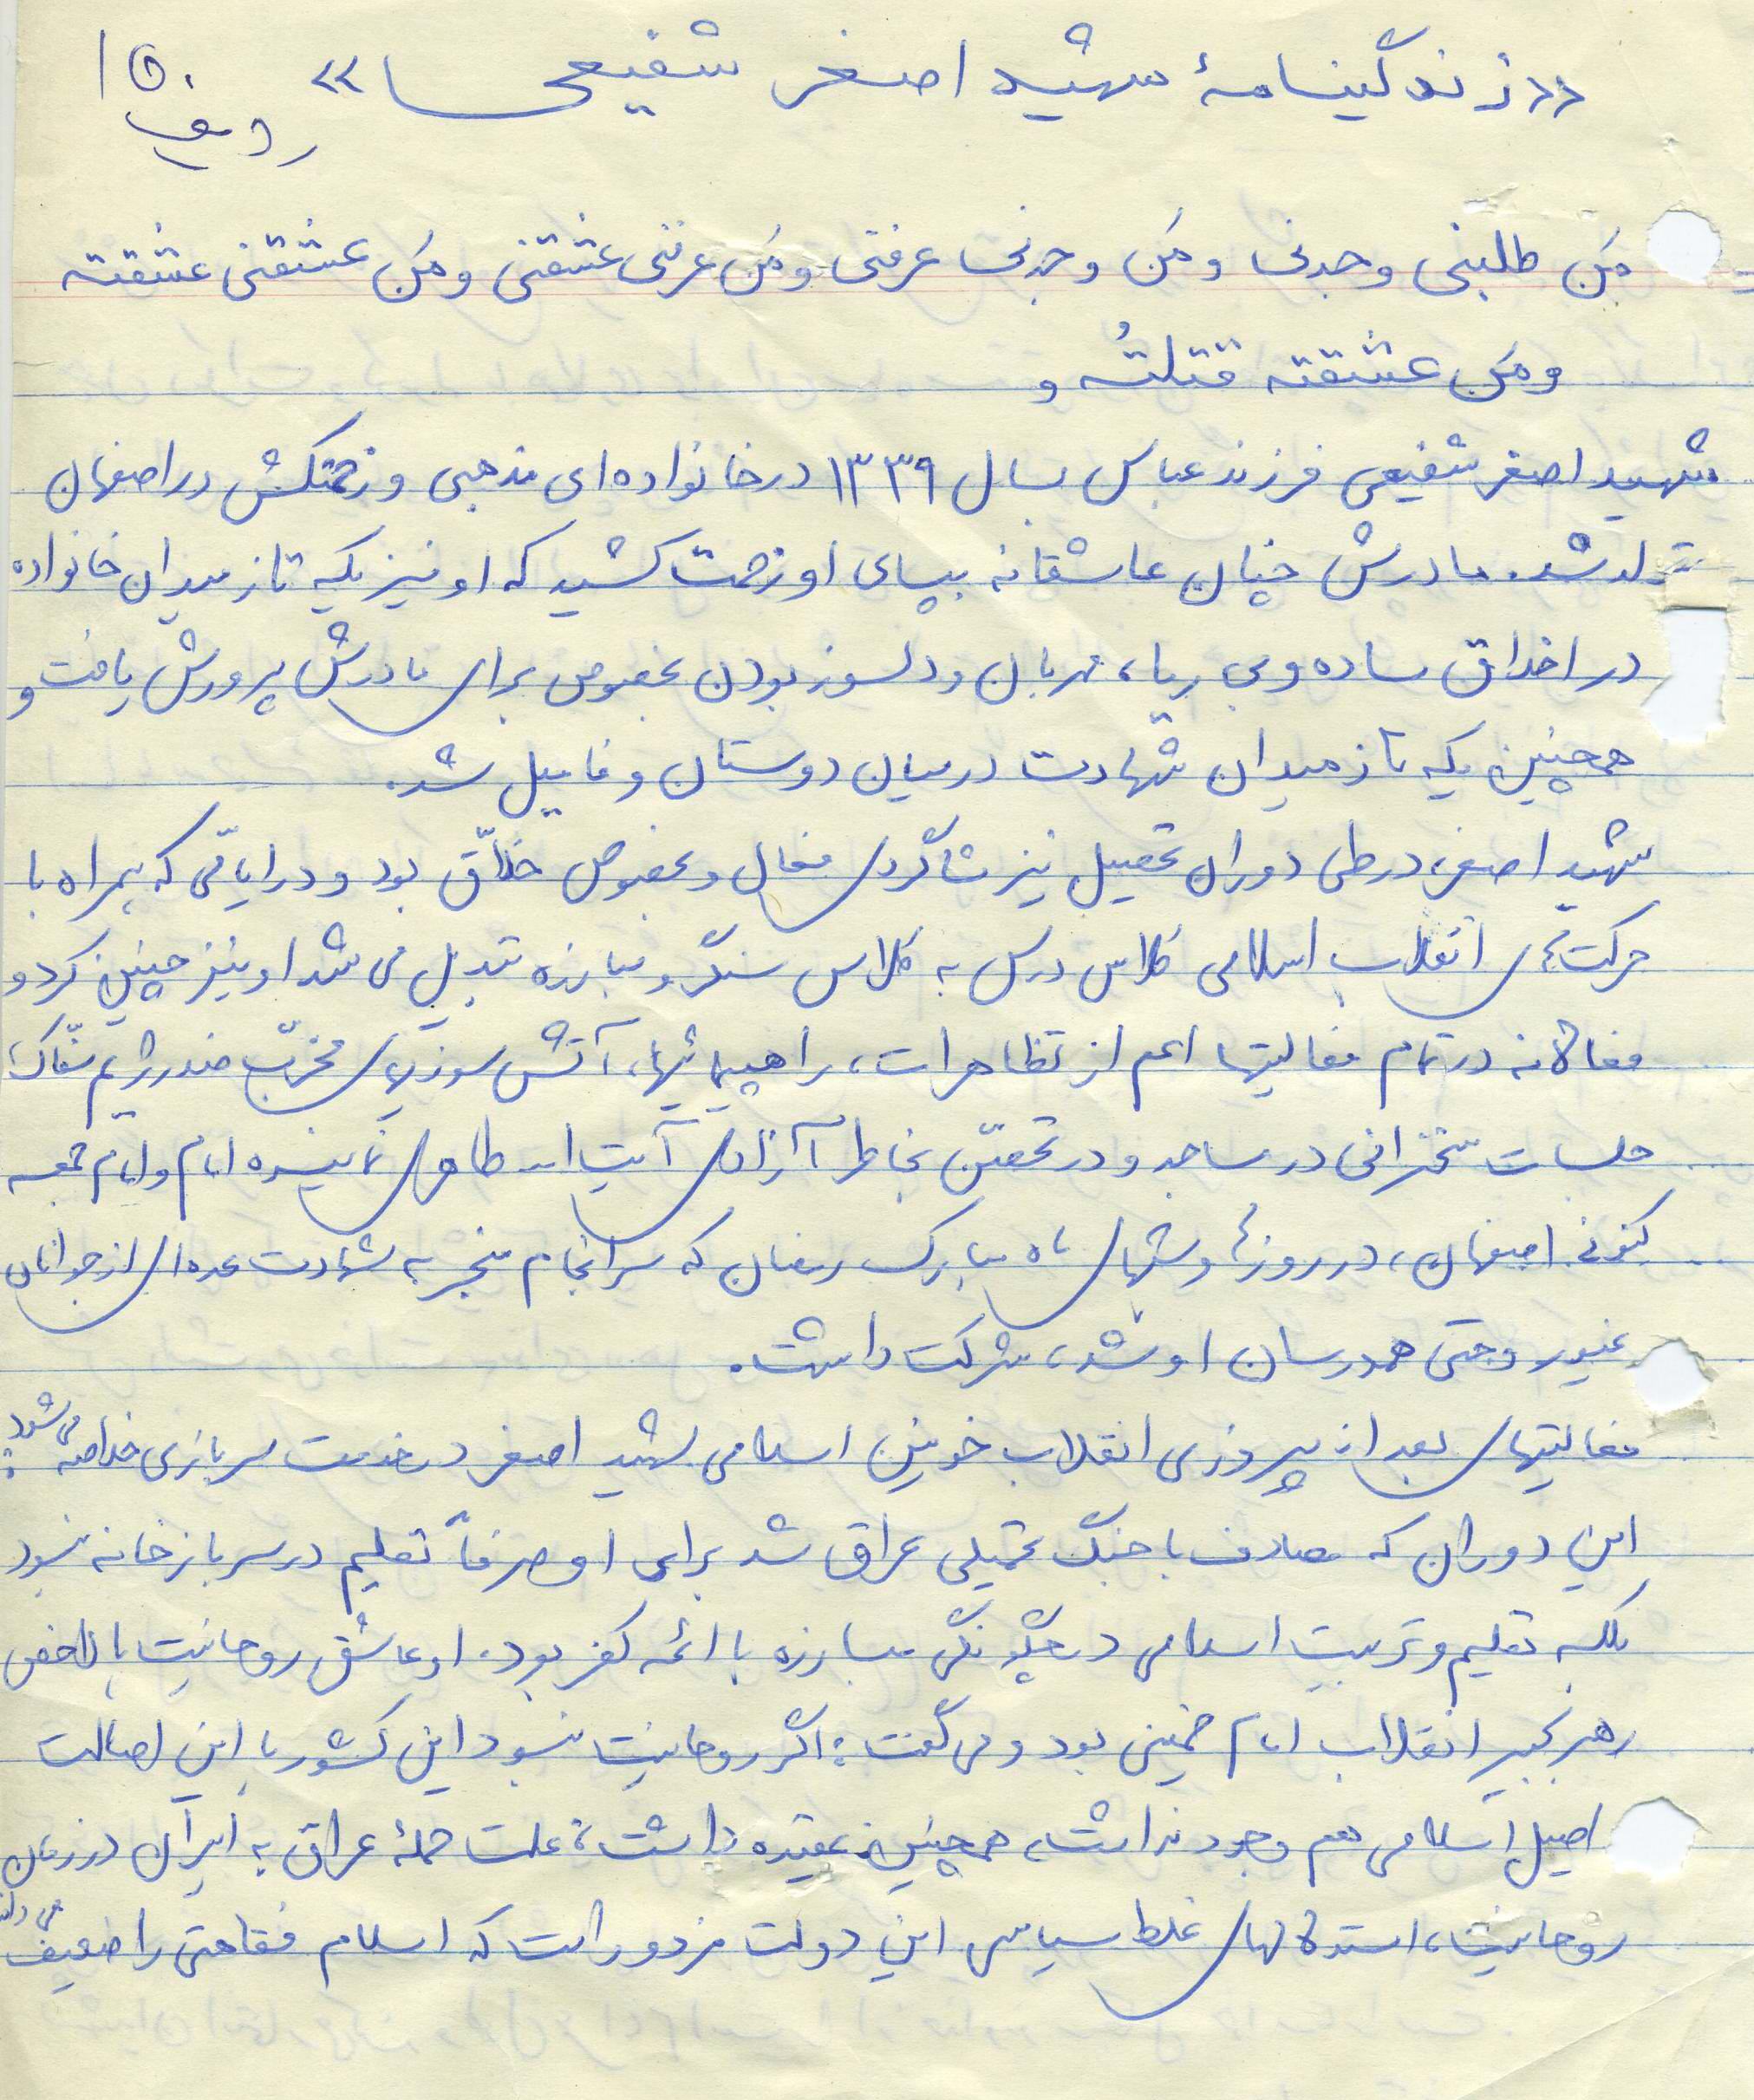 «زندگینامهٔ شهید اصغر شفیعی» ۱۵۰
ردیف
مَن طلبنی وجدنی ومَن وجدنی عرفنی ومَن عرفنی عشقنی ومَن عشقنی عشقته
ومَن عشقته قتلتُه و
شهید اصغر شفیعی فرزند عباس بسال ۱۳۳۹ در خانواده‌ای مذهبی و زحمتکش در اصفهان
متولد شد. مادرش چنان عاشقانه بپای او زحمت کشید که او نیز یکه تاز میدان خانواده
در اخلاق ساده و بی ریا، مهربان و دلسوز بودن بخصوص برای مادرش پرورش یافت و
همچنین یکه تاز میدان شهادت در میان دوستان و فامیل شد.
شهید اصغر در طی دوران تحصیل نیز شاگردی فعال و بخصوص خلاّق بود و در ایامی که همراه با
حرکتهای انقلاب اسلامی کلاس درس به کلاس سنگر و مبارزه تبدیل می شد او نیز چنین کرد و
فعالانه در تمام فعالیتها اعم از تظاهرات، راهپیمائیها، آتش سوزیهای مخرّب ضد رژیم سفّاک،
جلسات سخنرانی در مساجد و در تحصّن بخاطر آزادی آیت اله طاهری نماینده امام و امام جمعه
کنونی اصفهان، در روزها و شبهای ماه مبارک رمضان که سرانجام منجر به شهادت عده‌ای از جوانان
غیور و حتی همدرسان او شد، شرکت داشت.
فعالیتهای بعد از پیروزی انقلاب خونین اسلامی شهید اصغر در خدمت سربازی خلاصه می شود:
این دوران که مصادف با جنگ تحمیلی عراق شد برای او صرفاً تعلیم در سربازخانه نبود
بلکه تعلیم و تربیت اسلامی در چگونگی مبارزه با ائمه کفر بود. او عاشق روحانیت بالاخص
رهبر کبیر انقلاب امام خمینی بود و می گفت: اگر روحانیت نبود این کشور با این اصالت
اصیل اسلامی هم وجود نداشت، همچنین عقیده داشت: علت حملهٔ عراق به ایران در زمان
روحانیت، استدلالهای غلط سیاسی این دولت مزدور است که اسلام فقاهتی را ضعیف